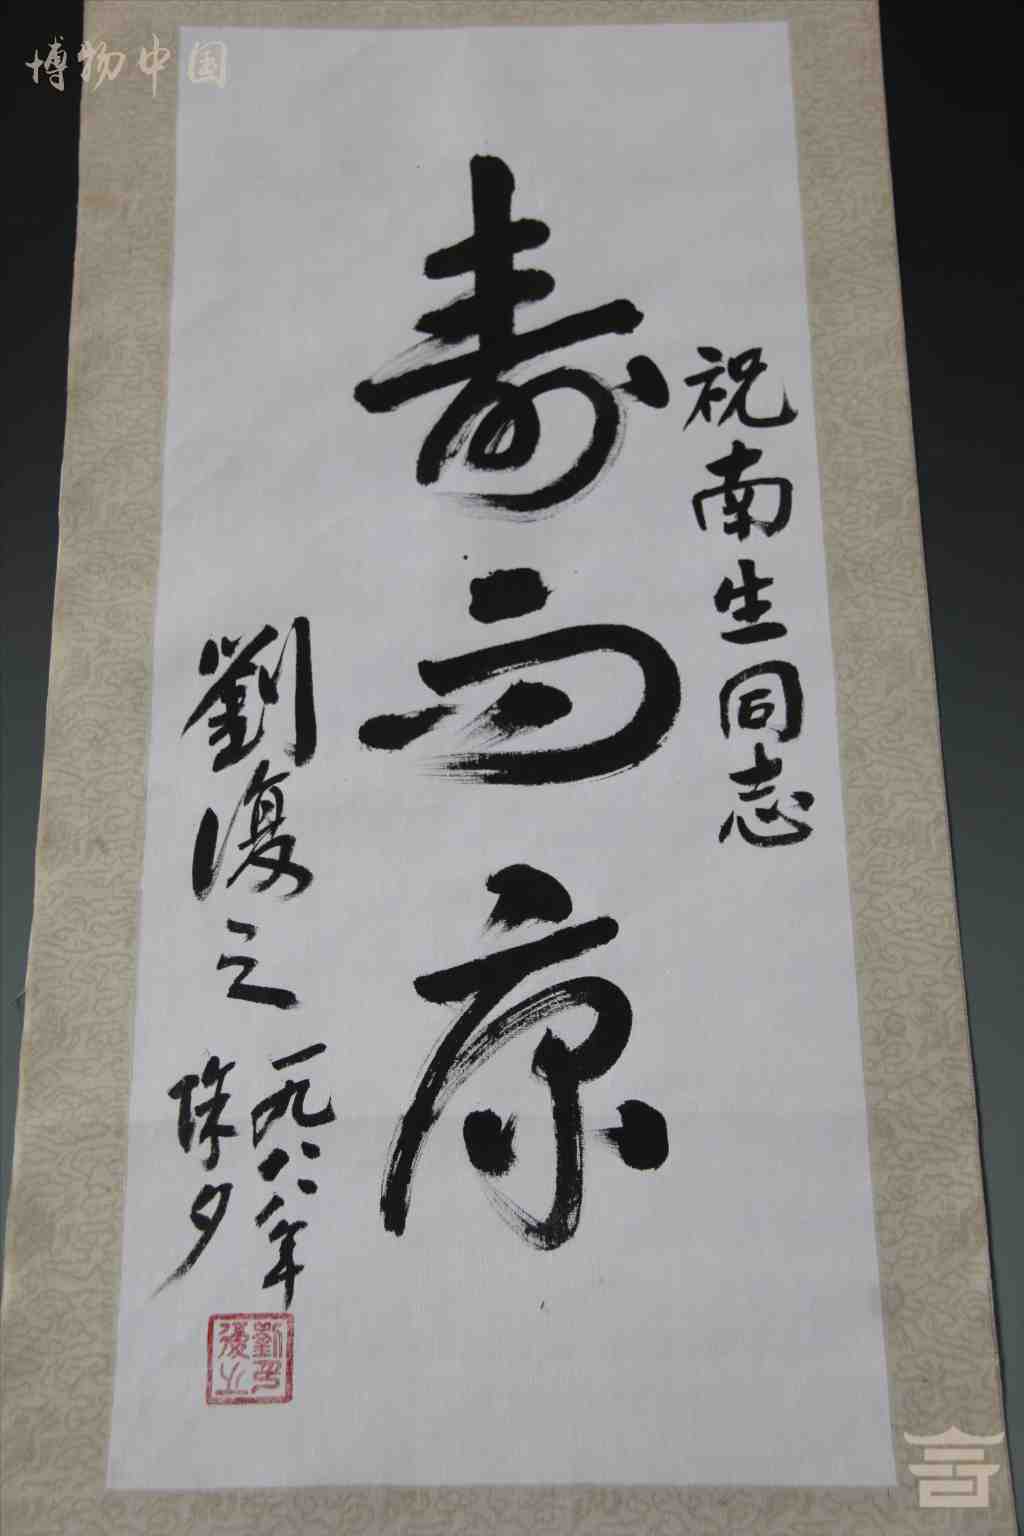 博物中国
祝南生同志
寿而康
劉復之
一九八八年
除夕